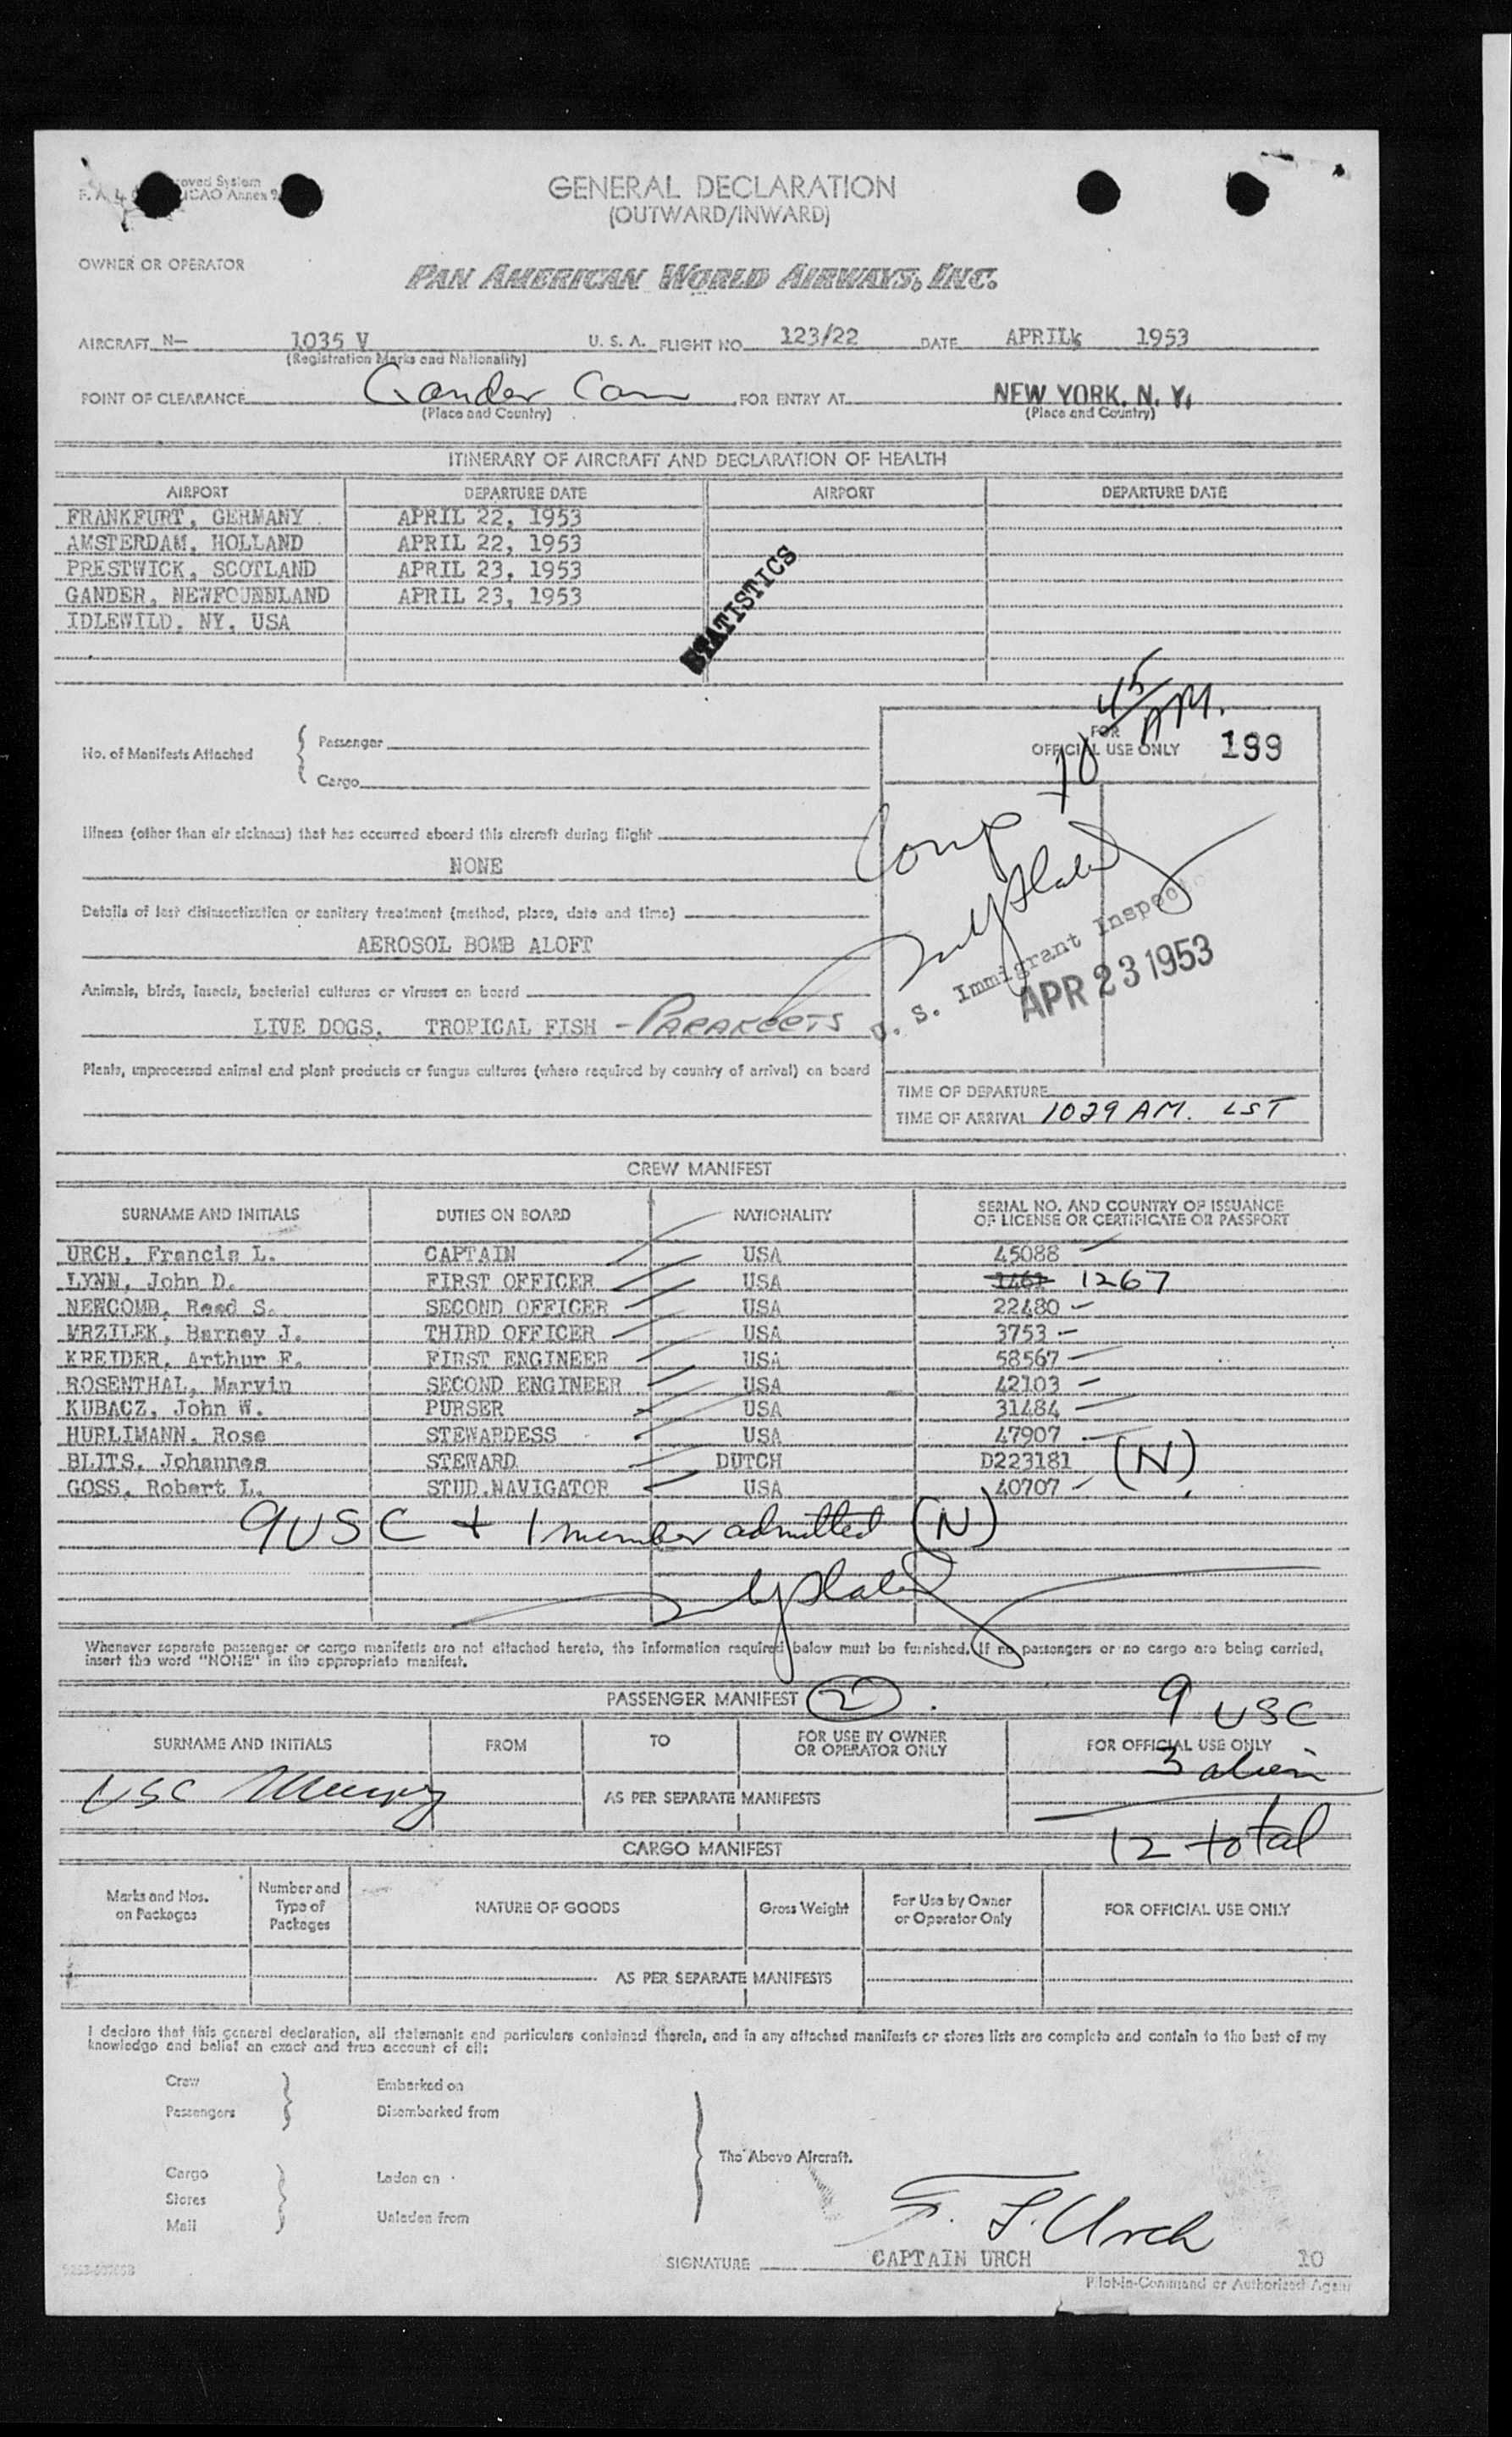 F. A. L. roved System
ICAO Annex 9
GENERAL DECLARATION
(OUTWARD/INWARD)
OWNER OR OPERATOR
PAN AMERICAN WORLD AIRWAYS, INC.
AIRCRAFT N— 1035 V U. S. A. FLIGHT NO. 123/22 DATE APRIL 1953
(Registration Marks and Nationality)
POINT OF CLEARANCE Gander Can FOR ENTRY AT NEW YORK, N. Y.
(Place and Country) (Place and Country)
ITINERARY OF AIRCRAFT AND DECLARATION OF HEALTH
AIRPORT DEPARTURE DATE AIRPORT DEPARTURE DATE
FRANKFURT, GERMANY APRIL 22, 1953
AMSTERDAM, HOLLAND APRIL 22, 1953
PRESTWICK, SCOTLAND APRIL 23, 1953
GANDER, NEWFOUNNLAND APRIL 23, 1953
IDLEWILD, NY, USA
STATISTICS
10 45 AM.
No. of Manifests Attached
Passenger
Cargo
FOR
OFFICIAL USE ONLY 199
Comp
Illness (other than air sickness) that has occurred aboard this aircraft during flight
NONE
Details of last disinsectization or sanitary treatment (method, place, date and time)
AEROSOL BOMB ALOFT
U. S. Immigrant Inspector
APR 23 1953
Animals, birds, insects, bacterial cultures or viruses on board
LIVE DOGS, TROPICAL FISH - PARAKEETS
Plants, unprocessed animal and plant products or fungus cultures (where required by country of arrival) on board
TIME OF DEPARTURE
TIME OF ARRIVAL 1029 AM. LST
CREW MANIFEST
SURNAME AND INITIALS DUTIES ON BOARD NATIONALITY SERIAL NO. AND COUNTRY OF ISSUANCE
OF LICENSE OR CERTIFICATE OR PASSPORT
URCH, Francis L. CAPTAIN USA 45088
LYNN, John D. FIRST OFFICER USA 1267
NEWCOMB, Reed S. SECOND OFFICER USA 22480
MRZILEK, Barney J. THIRD OFFICER USA 3753
KREIDER, Arthur F. FIRST ENGINEER USA 58567
ROSENTHAL, Marvin SECOND ENGINEER USA 42103
KUBACZ, John W. PURSER USA 31484
HURLIMANN, Rose STEWARDESS USA 47907
BLITS, Johannes STEWARD DUTCH D223181 (N)
GOSS, Robert L. STUD.NAVIGATOR USA 40707
9 USC + 1 member admitted (N)
Whenever separate passenger or cargo manifests are not attached hereto, the information required below must be furnished. If no passengers or no cargo are being carried,
insert the word "NONE" in the appropriate manifest.
PASSENGER MANIFEST 2
9 USC
SURNAME AND INITIALS FROM TO FOR USE BY OWNER
OR OPERATOR ONLY FOR OFFICIAL USE ONLY
3 alien
USC
AS PER SEPARATE MANIFESTS
12 total
CARGO MANIFEST
Marks and Nos.
on Packages Number and
Type of
Packages NATURE OF GOODS Gross Weight For Use by Owner
or Operator Only FOR OFFICIAL USE ONLY
AS PER SEPARATE MANIFESTS
I declare that this general declaration, all statements and particulars contained therein, and in any attached manifests or stores lists are complete and contain to the best of my
knowledge and belief an exact and true account of all:
Crew Embarked on
Passengers Disembarked from
The Above Aircraft.
Cargo Laden on
Stores
Mail Unladen from
F. L. Urch
SIGNATURE CAPTAIN URCH 10
Pilot-in-Command or Authorized Agent